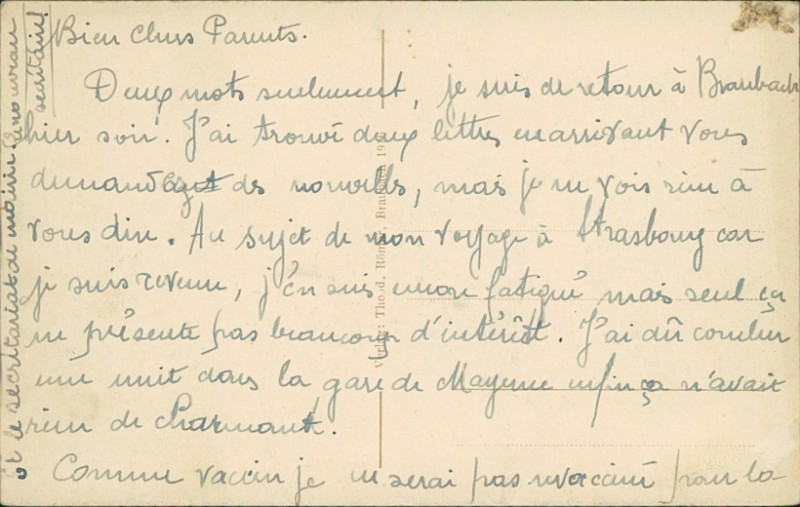 Bien Chers Parents.
Deux mots seulement, je suis de retour à Braubach
hier soir. J'ai trouvé deux lettres en arrivant vous
demandez des nouvelles, mais je ne vois rien à
vous dire. Au sujet de mon voyage à Strasbourg car
je suis revenu, j'en suis encore fatigué mais seul ça
ne présente pas beaucoup d'intérêt. J'ai dû coucher
une nuit dans la gare de Mayence enfin ça n'avait
rien de charmant.
Comme vaccin je ne serai pas revacciné pour la
et le secrétariat de mairie
secrétaire!
Verlag: Theod. Römer, Braubach